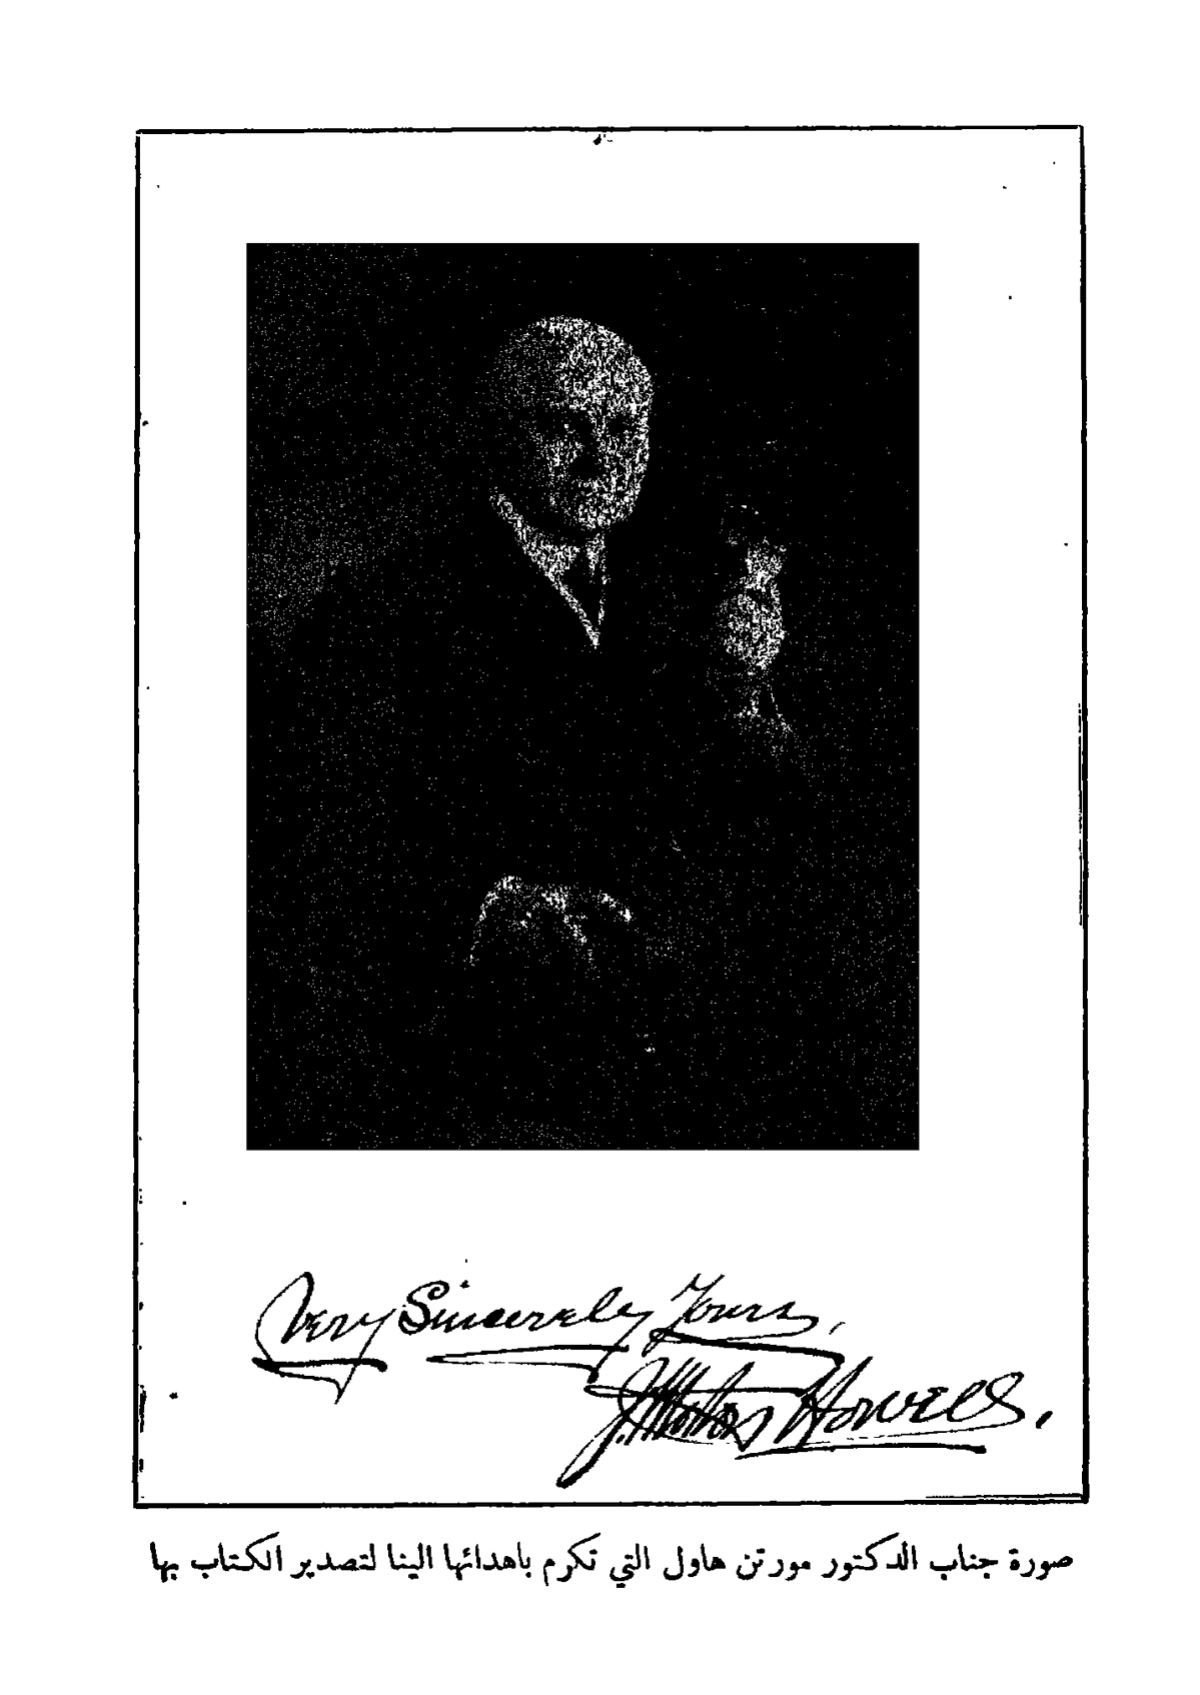 Very Sincerely Yours,
J. Morton Howells.
صورة جناب الدكتور مورتن هاول التي تكرم باهدائها الينا لتصدير الكتاب بها